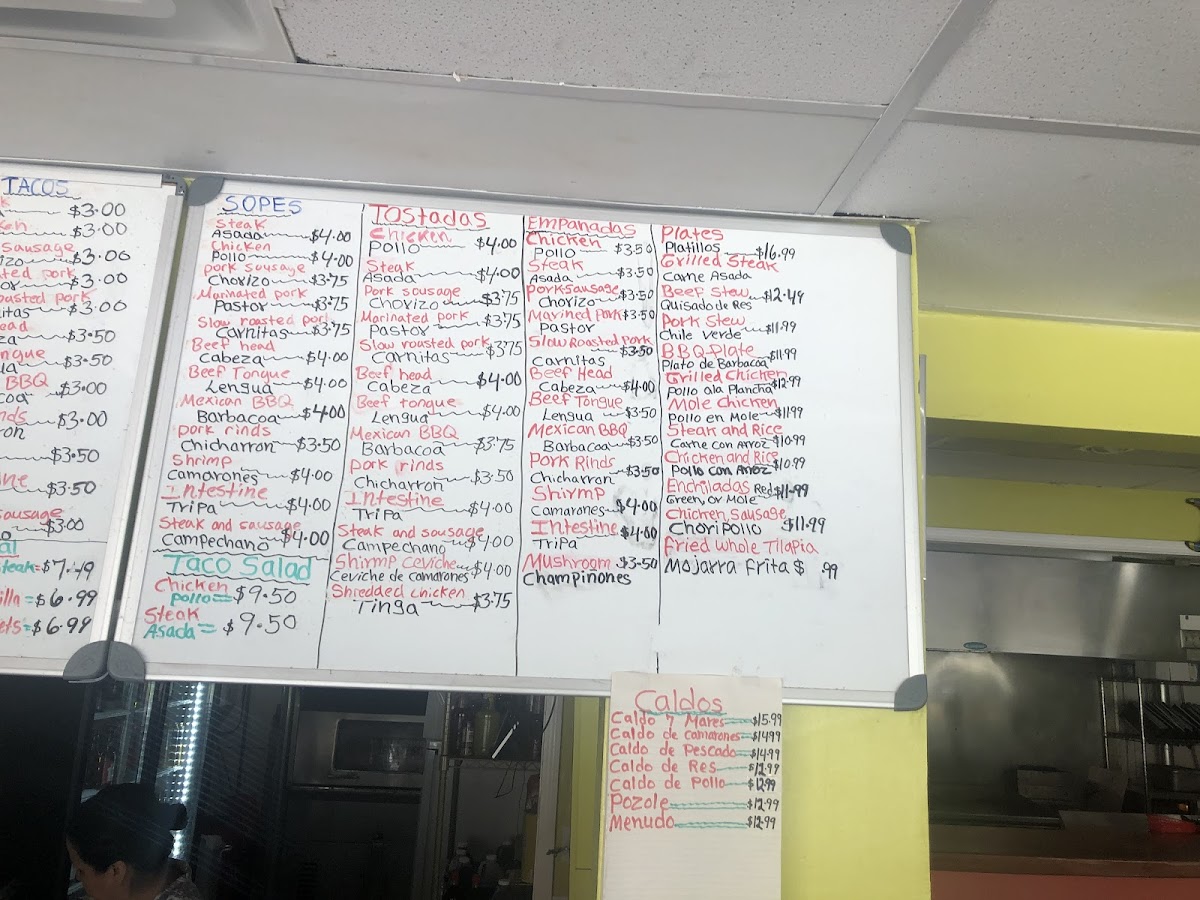 TACOS
$3.00
$3.00
sausage
$3.00
pork
$3.00
pork
$3.00
$3.50
$3.50
BBQ
$3.00
$3.00
$3.50
$3.50
sausage
$3.00
$7.49
$6.99
$6.99
SOPES
Steak
Asada $4.00
Chicken
Pollo $4.00
pork sausage
Chorizo $3.75
Marinated pork
Pastor $3.75
Slow roasted pork
Carnitas $3.75
Beef head
Cabeza $4.00
Beef Tongue
Lengua $4.00
Mexican BBQ
Barbacoa $4.00
pork rinds
Chicharron $3.50
Shrimp
Camarones $4.00
Intestine
Tripa $4.00
Steak and sausage
Campechano $4.00
Taco Salad
Chicken
pollo = $9.50
Steak
Asada = $9.50
Tostadas
Chicken
Pollo $4.00
Steak
Asada $4.00
Pork sausage
Chorizo $3.75
Marinated pork
Pastor $3.75
Slow roasted pork
Carnitas $3.75
Beef head
Cabeza $4.00
Beef tongue
Lengua $4.00
Mexican BBQ
Barbacoa $3.75
pork rinds
Chicharron $3.50
Intestine
Tripa $4.00
Steak and sausage
Campechano $4.00
Shrimp ceviche
Ceviche de camarones $4.00
Shredded chicken
Tinga $3.75
Empanadas
Chicken
Pollo $3.50
Steak
Asada $3.50
pork sausage
Chorizo $3.50
Marined Pork $3.50
Pastor
Slow Roasted pork
$3.50
Carnitas
Beef Head
Cabeza $4.00
Beef Tongue
Lengua $3.50
Mexican BBQ
Barbacoa $3.50
Pork Rinds
Chicharron $3.50
Shirmp
Camarones $4.00
Intestine $4.00
Tripa
Mushroom $3.50
Champinones
Plates
Platillos $16.99
Grilled Steak
Carne Asada
Beef Stew $12.49
Quisado de Res
Pork Stew
Chile Verde $11.99
BBQ Plate $11.99
Plato de Barbacoa
Grilled Chicken
Pollo ala Plancha $12.99
Mole Chicken
Pollo en Mole $11.99
Steak and Rice
Carne con Arroz $10.99
Chicken and Rice
Pollo con Arroz $10.99
Enchiladas Red $11.99
Green, or Mole
Chicken, Sausage
Choripollo $11.99
Fried whole Tilapia
Mojarra frita $ .99
Caldos
Caldo 7 Mares $15.99
Caldo de camarones $14.99
Caldo de Pescado $14.99
Caldo de Res $12.99
Caldo de Pollo $12.99
Pozole $12.99
Menudo $12.99